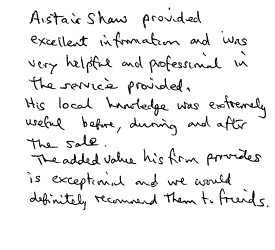 Alistair Shaw provided
excellent information and was
very helpful and professional in
the service provided.
His local knowledge was extremely
useful before, during and after
the sale.
The added value his firm provides
is exceptional and we would
definitely recommend them to friends.